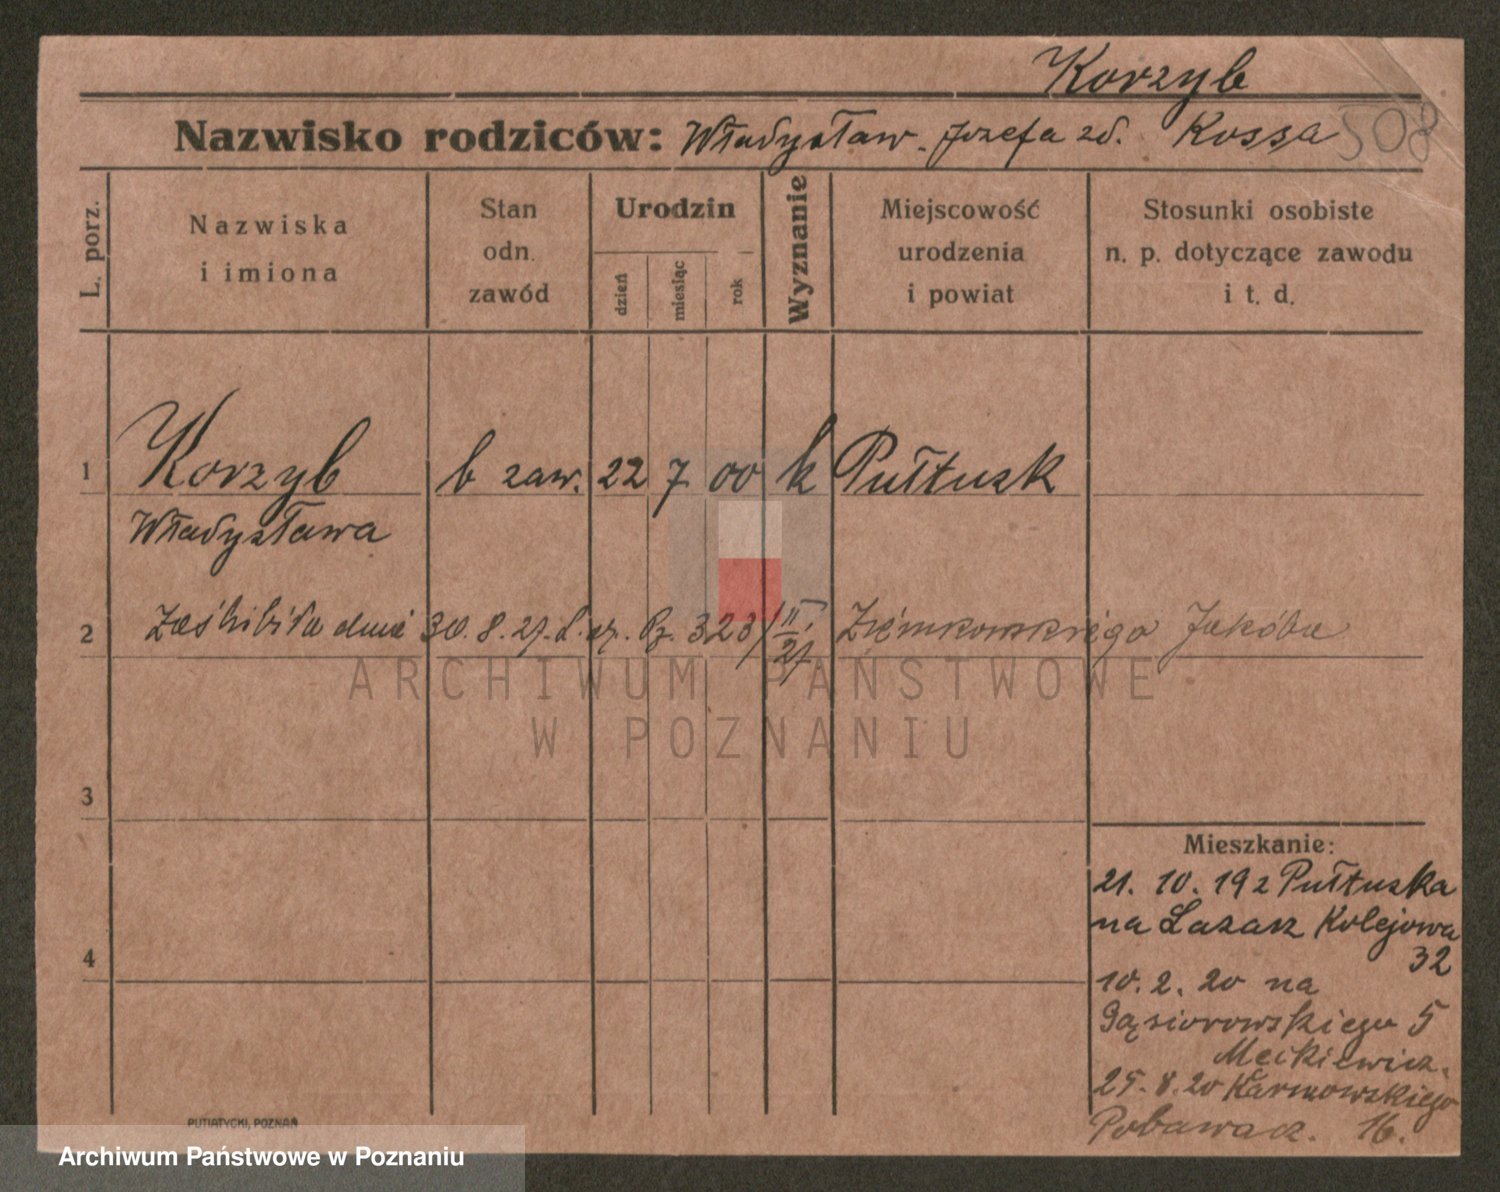 Korzyb
Nazwisko rodziców: Władysław. Józefa zd. Kossa 508
L. porz.
Nazwiska
i imiona
Stan
odn.
zawód
Urodzin
dzień
miesiąc
rok
Wyznanie
Miejscowość
urodzenia
i powiat
Stosunki osobiste
n. p. dotyczące zawodu
i t. d.
1 Korzyb b zaw. 22 7 00 k Pułtusk
Władysława
2 Zaślubiła dnia 30.8.27. 323/II 27 Ziemkowskiego Jakóba
ARCHIWUM PAŃSTWOWE
W POZNANIU
3
4
Mieszkanie:
21. 10. 19 z Pułtuska
na Lazarz Kolejowa
32
10. 2. 20 na
Gąsiorowskiego 5
25. 8. 20
16.
PUTIATYCKI, POZNAŃ
Archiwum Państwowe w Poznaniu